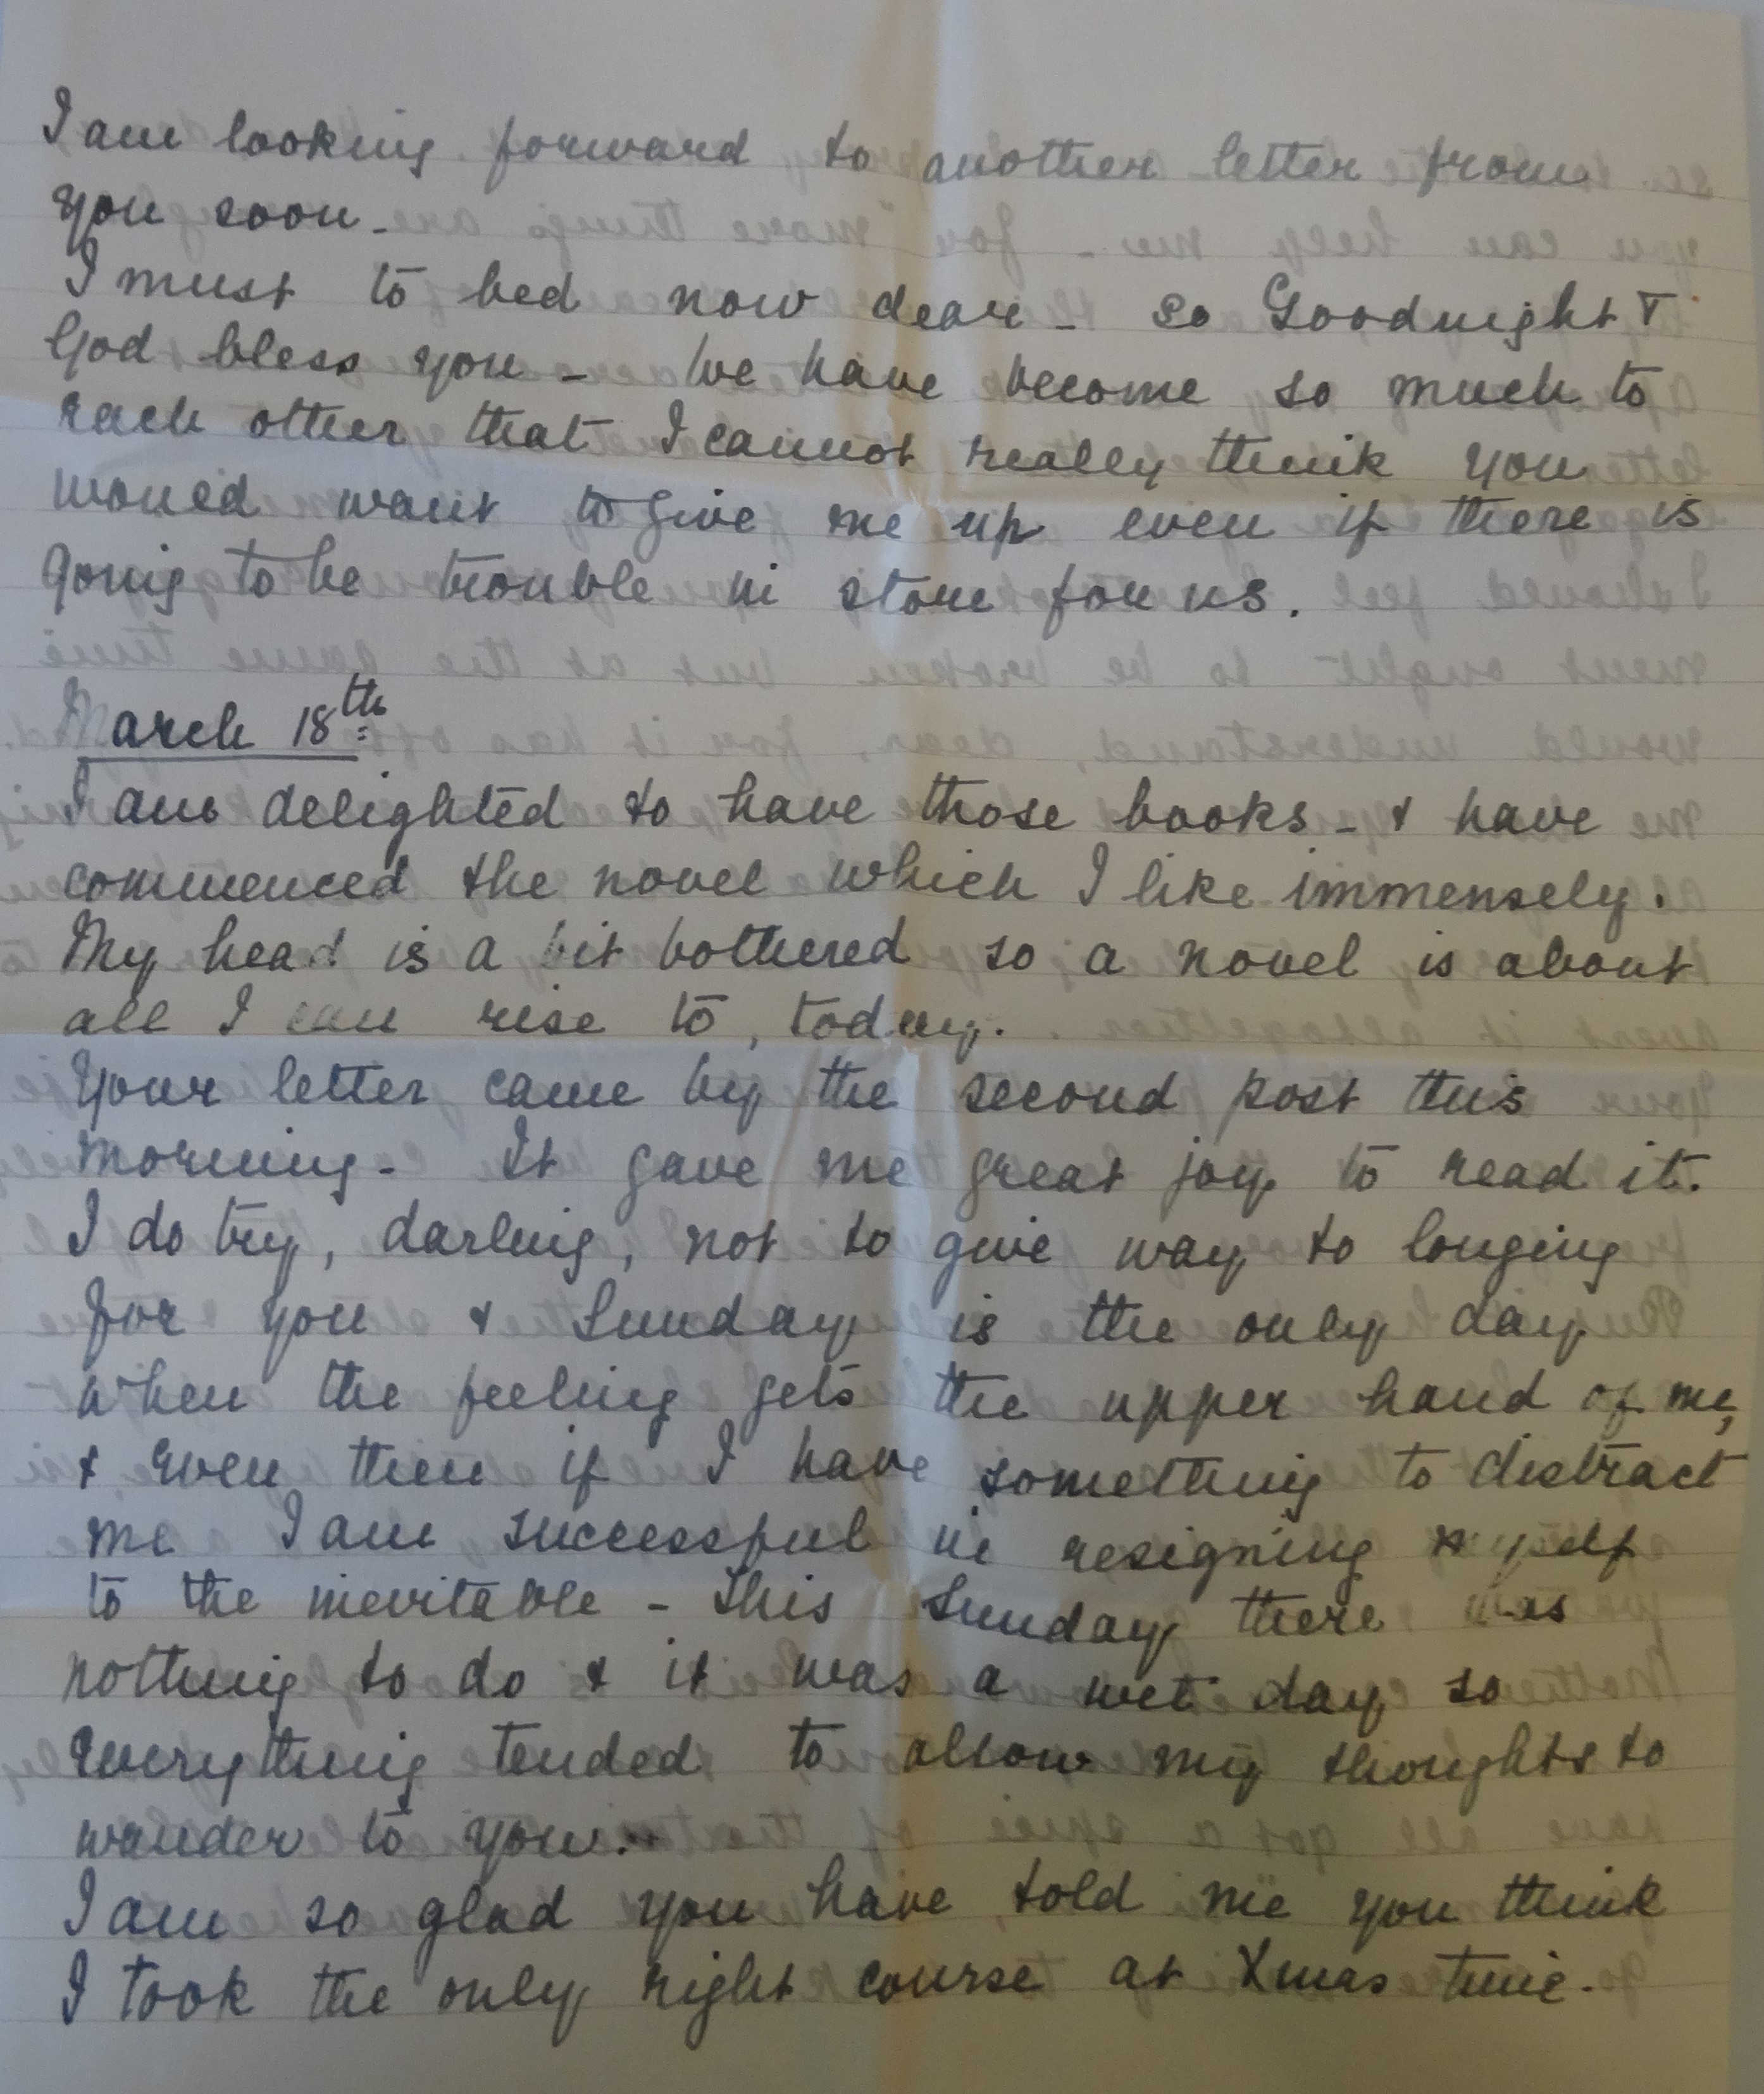 I am looking forward to another letter from
you soon -
I must to bed now dear - so Goodnight &
God bless you - We have become so much to
each other that I cannot really think you
would want to give me up even if there is
going to be trouble in store for us.
March 18th
I am delighted to have those books - & have
commenced the novel which I like immensely.
My head is a bit bothered so a novel is about
all I can rise to, today.
Your letter came by the second post this
morning - It gave me great joy to read it.
I do try, darling, not to give way to longing
for you & Sunday is the only day
when the feeling gets the upper hand of me,
& even then if I have something to distract
me I am successful in resigning myself
to the inevitable - This Sunday there was
nothing to do & it was a wet day so
everything tended to allow my thoughts to
wander to you.
I am so glad you have told me you think
I took the only right course at Xmas time.